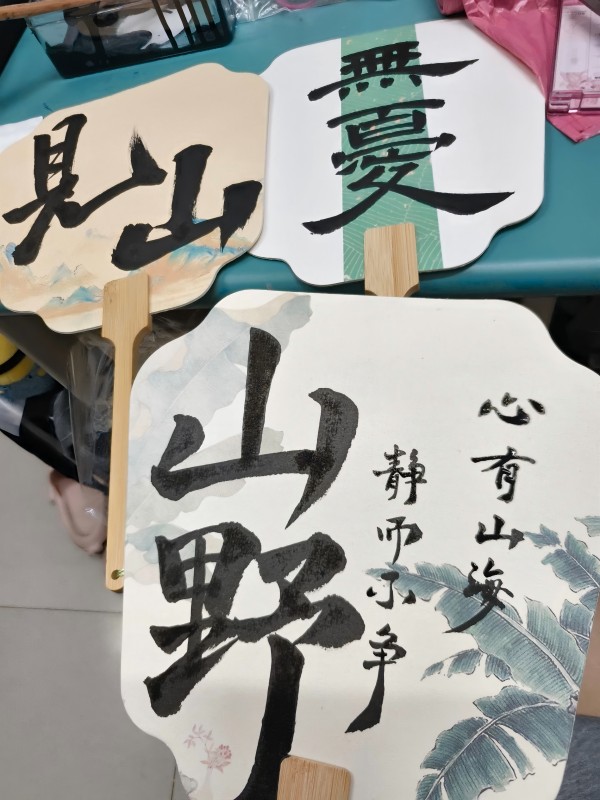 見山
無憂
心有山海
静而不争
山野